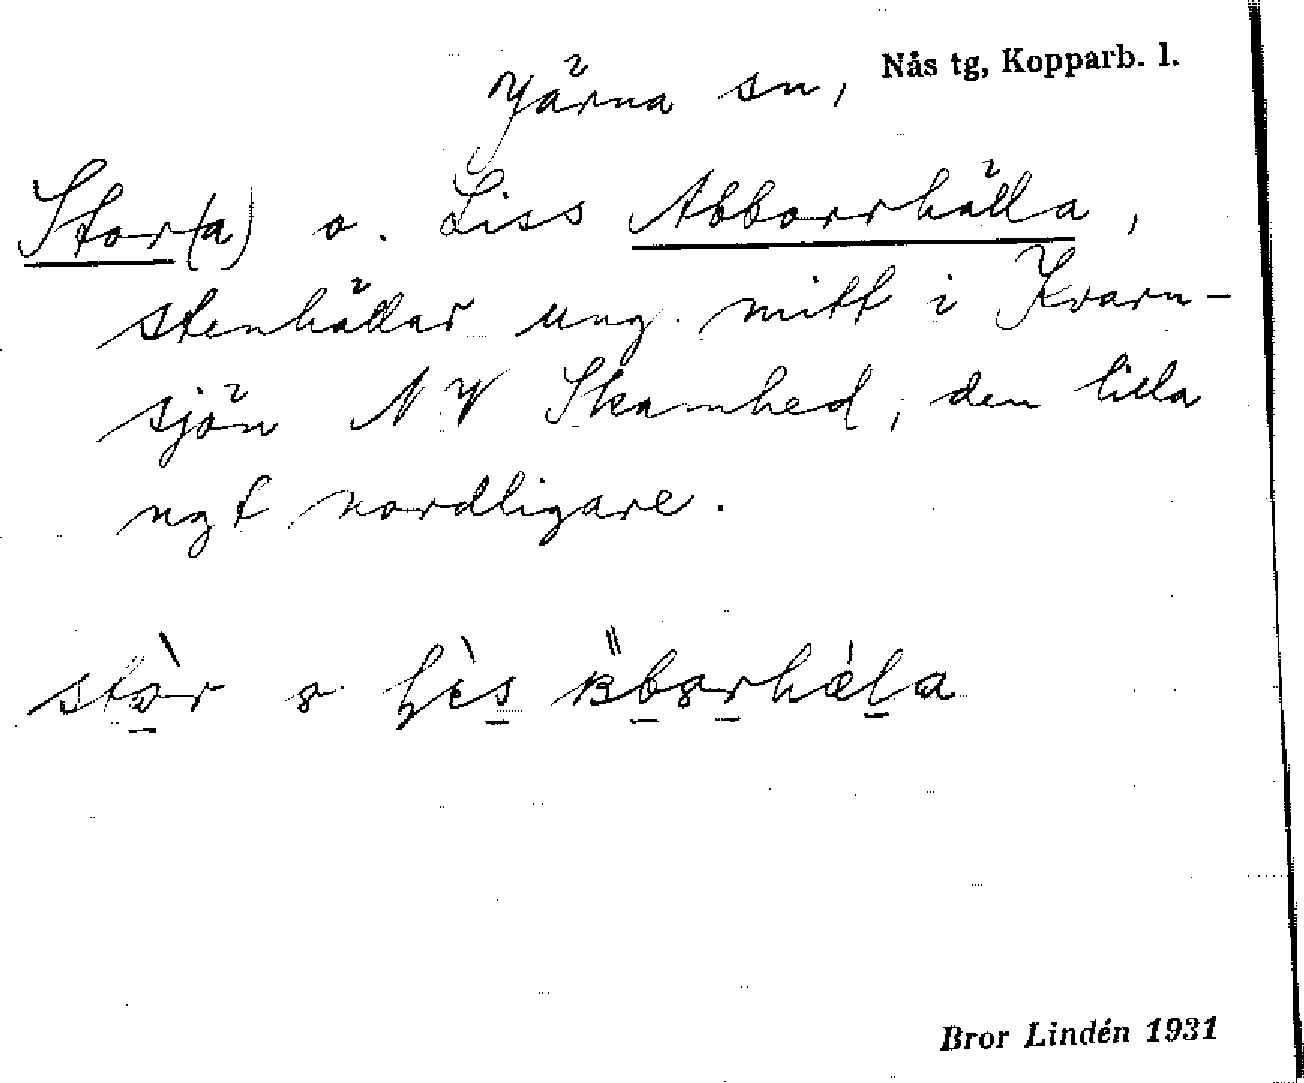 Järna sn, Nås tg, Kopparb. l.
Stor(a) o. Liss Abborrhälla,
stenhällar ung. mitt i Kvarn-
sjön NV Skamhed, den lilla
ngt nordligare.
Bror Lindén 1931